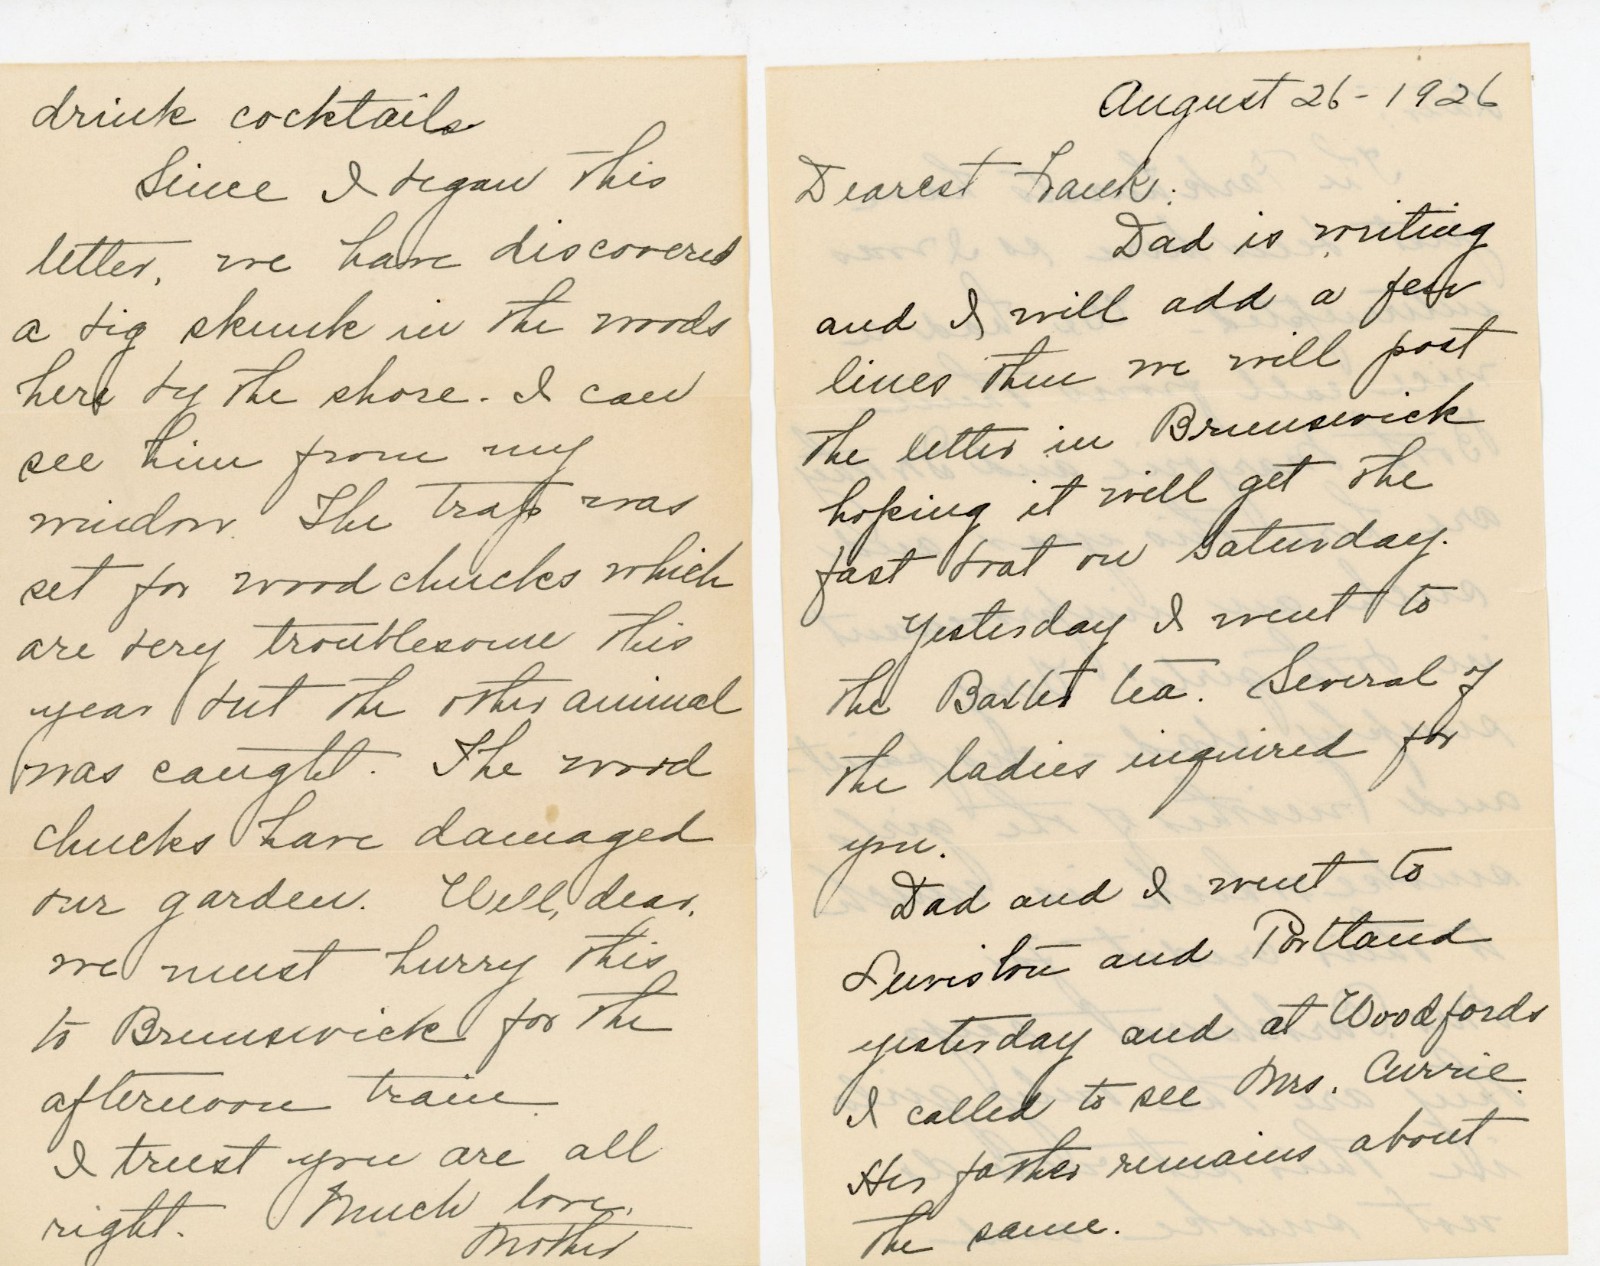 August 26 - 1926
Dearest Frank:
Dad is writing
and I will add a few
lines then we will post
the letter in Brunswick
hoping it will get the
fast boat on Saturday.
Yesterday I went to
the Baxter tea. Several of
the ladies inquired for
you.
Dad and I went to
Lewiston and Portland
yesterday and at Woodfords
I called to see Mrs. Currie.
Her father remains about
the same.
drink cocktails
Since I began this
letter, we have discovered
a big skunk in the woods
here by the shore. I can
see him from my
window. The trap was
set for wood chucks which
are very troublesome this
year but the other animal
was caught. The wood
chucks have damaged
our garden. Well, dear,
we must hurry this
to Brunswick for the
afternoon train.
I trust you are all
right. Much love,
Mother